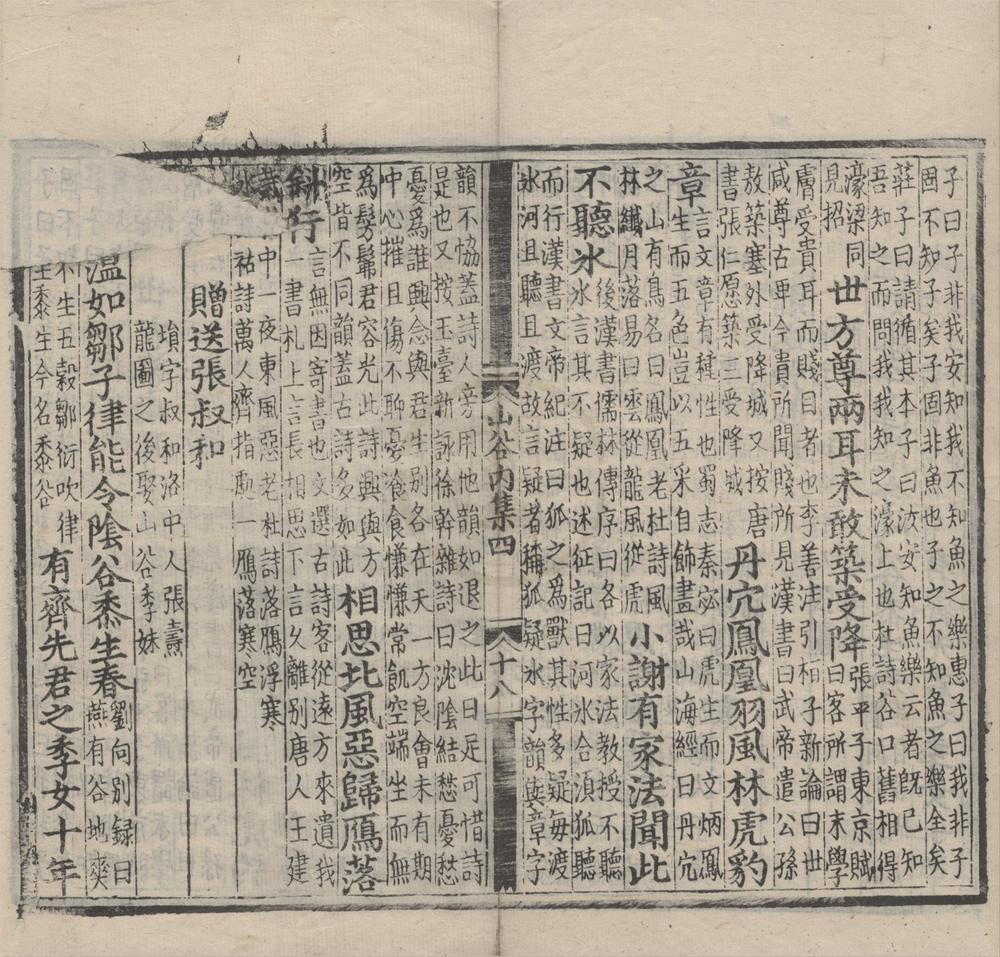 子曰子非我安知我不知魚之樂惠子曰我非子
固不知子矣子固非魚也子之不知魚之樂全矣
莊子曰請循其本子曰汝安知魚樂云者旣已知
吾知之而問我我知之濠上也杜詩谷口舊相得
濠梁同
見招
世方尊兩耳未敢築受降
張平子東京賦
曰客所謂末學
膚受貴耳而賤目者也李善注引桓子新論曰世
咸尊古卑今貴所聞賤所見漢書曰武帝遣公孫
敖築塞外受降城又按唐
書張仁愿築三受降城
丹穴鳳凰羽風林虎豹
章
言文章有種性也蜀志秦宓曰虎生而文炳鳳
生而五色豈以五采自飾畫哉山海經曰丹穴
之山有鳥名曰鳳凰老杜詩風
林纖月落易曰雲從龍風從虎
小謝有家法聞此
不聽冰
後漢書儒林傳序曰各以家法教授不聽
冰言其不疑也述征記曰河冰合須狐聽
而行漢書文帝紀注曰狐之爲獸其性多疑每渡
冰河且聽且渡故言疑者稱狐疑冰字韻與章字
山谷内集四
十八
韻不協蓋詩人旁用他韻如退之此日足可惜詩
是也又按玉臺新詠徐幹雜詩曰沈陰結愁憂愁
憂爲誰興念與君生別各在天一方良會未有期
中心摧且傷不聊憂湌食慊慊常飢空端坐而無
爲髣髴君容光此詩興與方
空皆不同韻蓋古詩多如此
相思北風惡歸鴈落
斜行
言無因寄書也文選古詩客從遠方來遺我
一書札上言長相思下言久離別唐人王建
中一夜東風惡老杜詩落鴈浮寒
祐詩萬人齊指處一鴈落寒空
贈送張叔和
塤字叔和洛中人張燾
龍圖之後娶山谷季妹
溫如鄒子律能令陰谷黍生春
劉向別録曰
燕有谷地爽
不生五穀鄒衍吹律
生黍生今名黍谷
有齊先君之季女十年